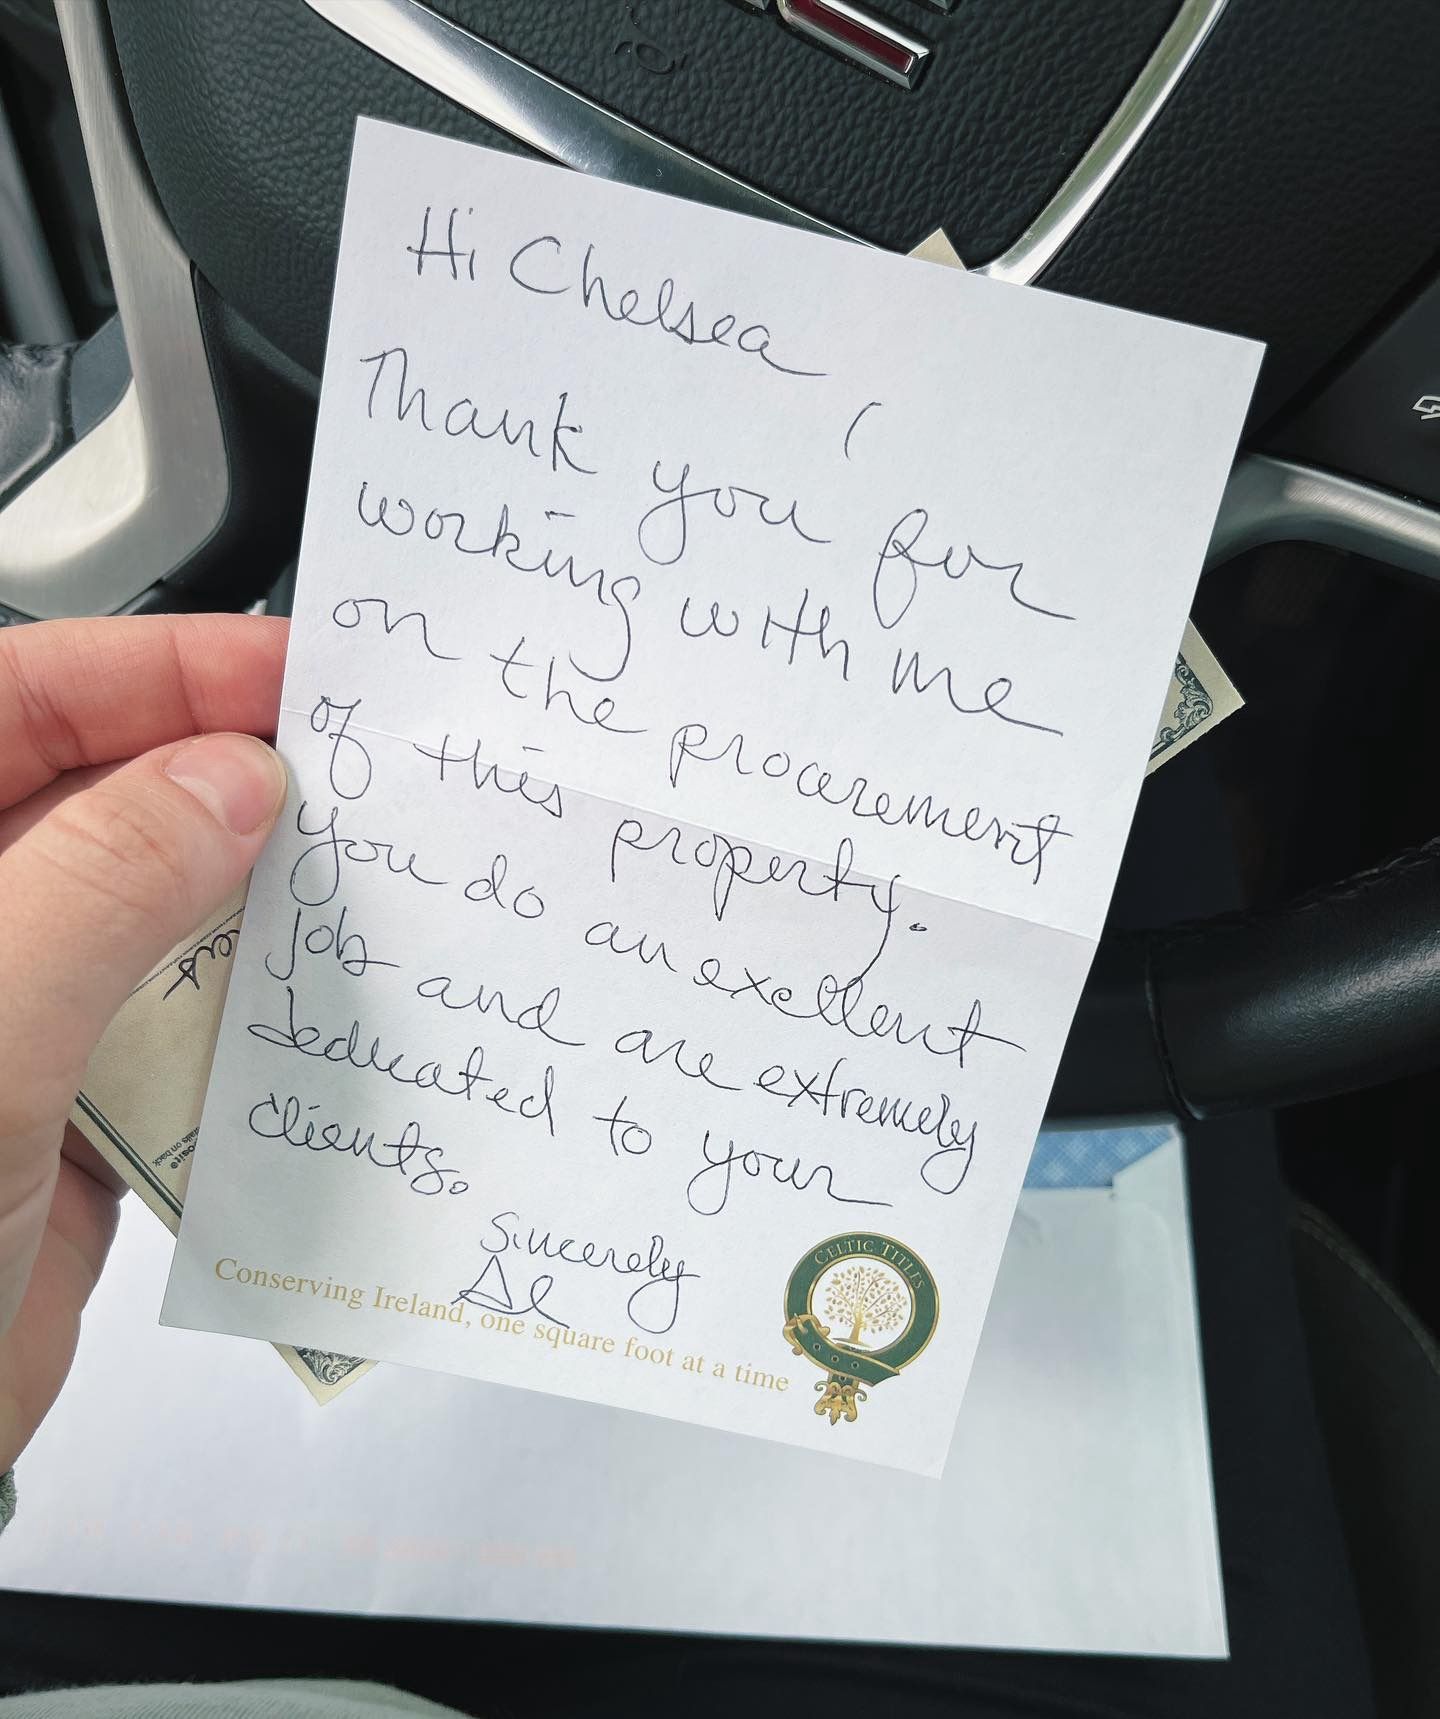 Hi Chelsea,
Thank you for
working with me
on the procurement
of this property.
you do an excellent
job and are extremely
dedicated to your
clients.
Sincerely
Al
Conserving Ireland, one square foot at a time
CELTIC TITLES